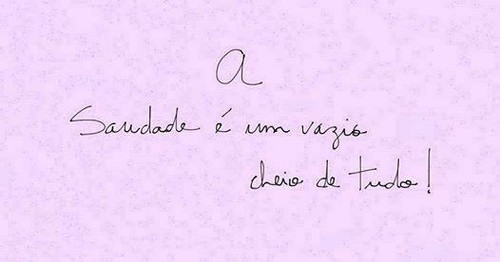 A
Saudade é um vazio
cheio de tudo!